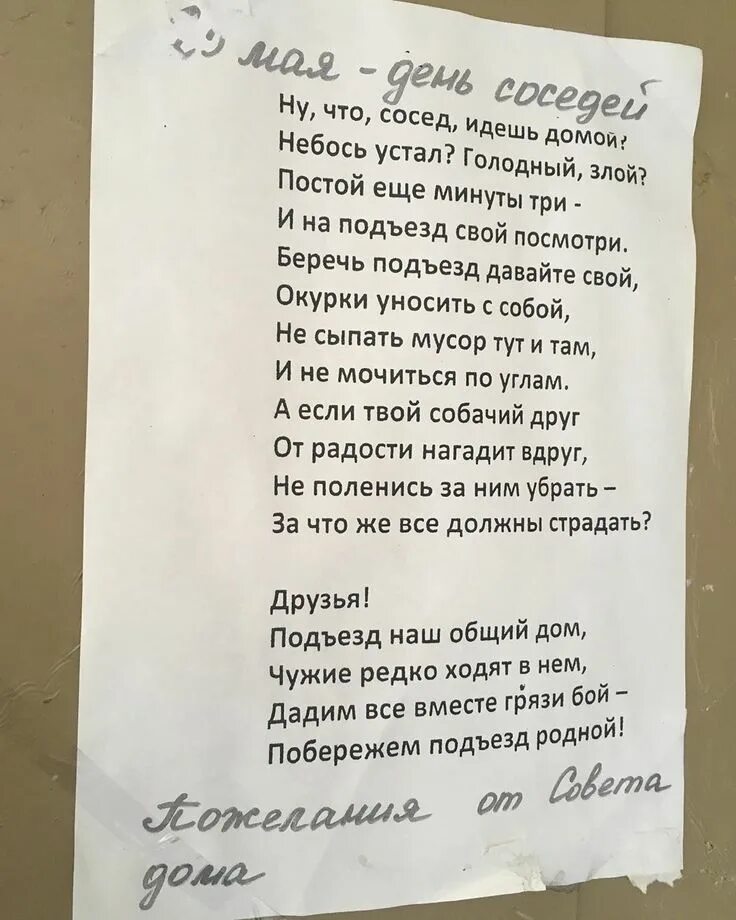 мая - день соседей
Ну, что, сосед, идешь домой?
Небось устал? Голодный, злой?
Постой еще минуты три -
И на подъезд свой посмотри.
Беречь подъезд давайте свой,
Окурки уносить с собой,
Не сыпать мусор тут и там,
И не мочиться по углам.
А если твой собачий друг
От радости нагадит вдруг,
Не поленись за ним убрать –
За что же все должны страдать?
Друзья!
Подъезд наш общий дом,
Чужие редко ходят в нем,
Дадим все вместе грязи бой –
Побережем подъезд родной!
Пожелания от Совета
дома